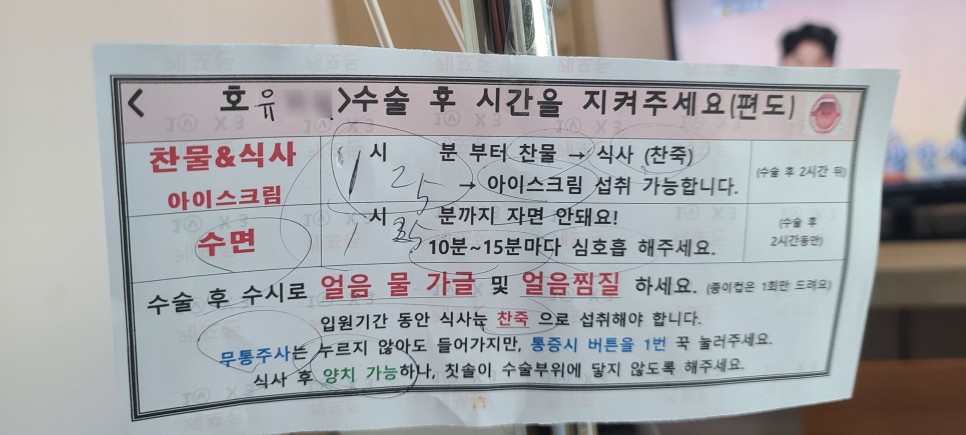 < 호 유 >수술 후 시간을 지켜주세요(편도)
찬물&식사
아이스크림
1시 25분 부터 찬물 → 식사 (찬죽)
→ 아이스크림 섭취 가능합니다.
(수술 후 2시간 뒤)
수면
1시 25분까지 자면 안돼요!
10분~15분마다 심호흡 해주세요.
(수술 후
2시간동안)
수술 후 수시로 얼음 물 가글 및 얼음찜질 하세요. (종이컵은 1회만 드려요)
입원기간 동안 식사는 찬죽 으로 섭취해야 합니다.
무통주사는 누르지 않아도 들어가지만, 통증시 버튼을 1번 꾹 눌러주세요.
식사 후 양치 가능하나, 칫솔이 수술부위에 닿지 않도록 해주세요.